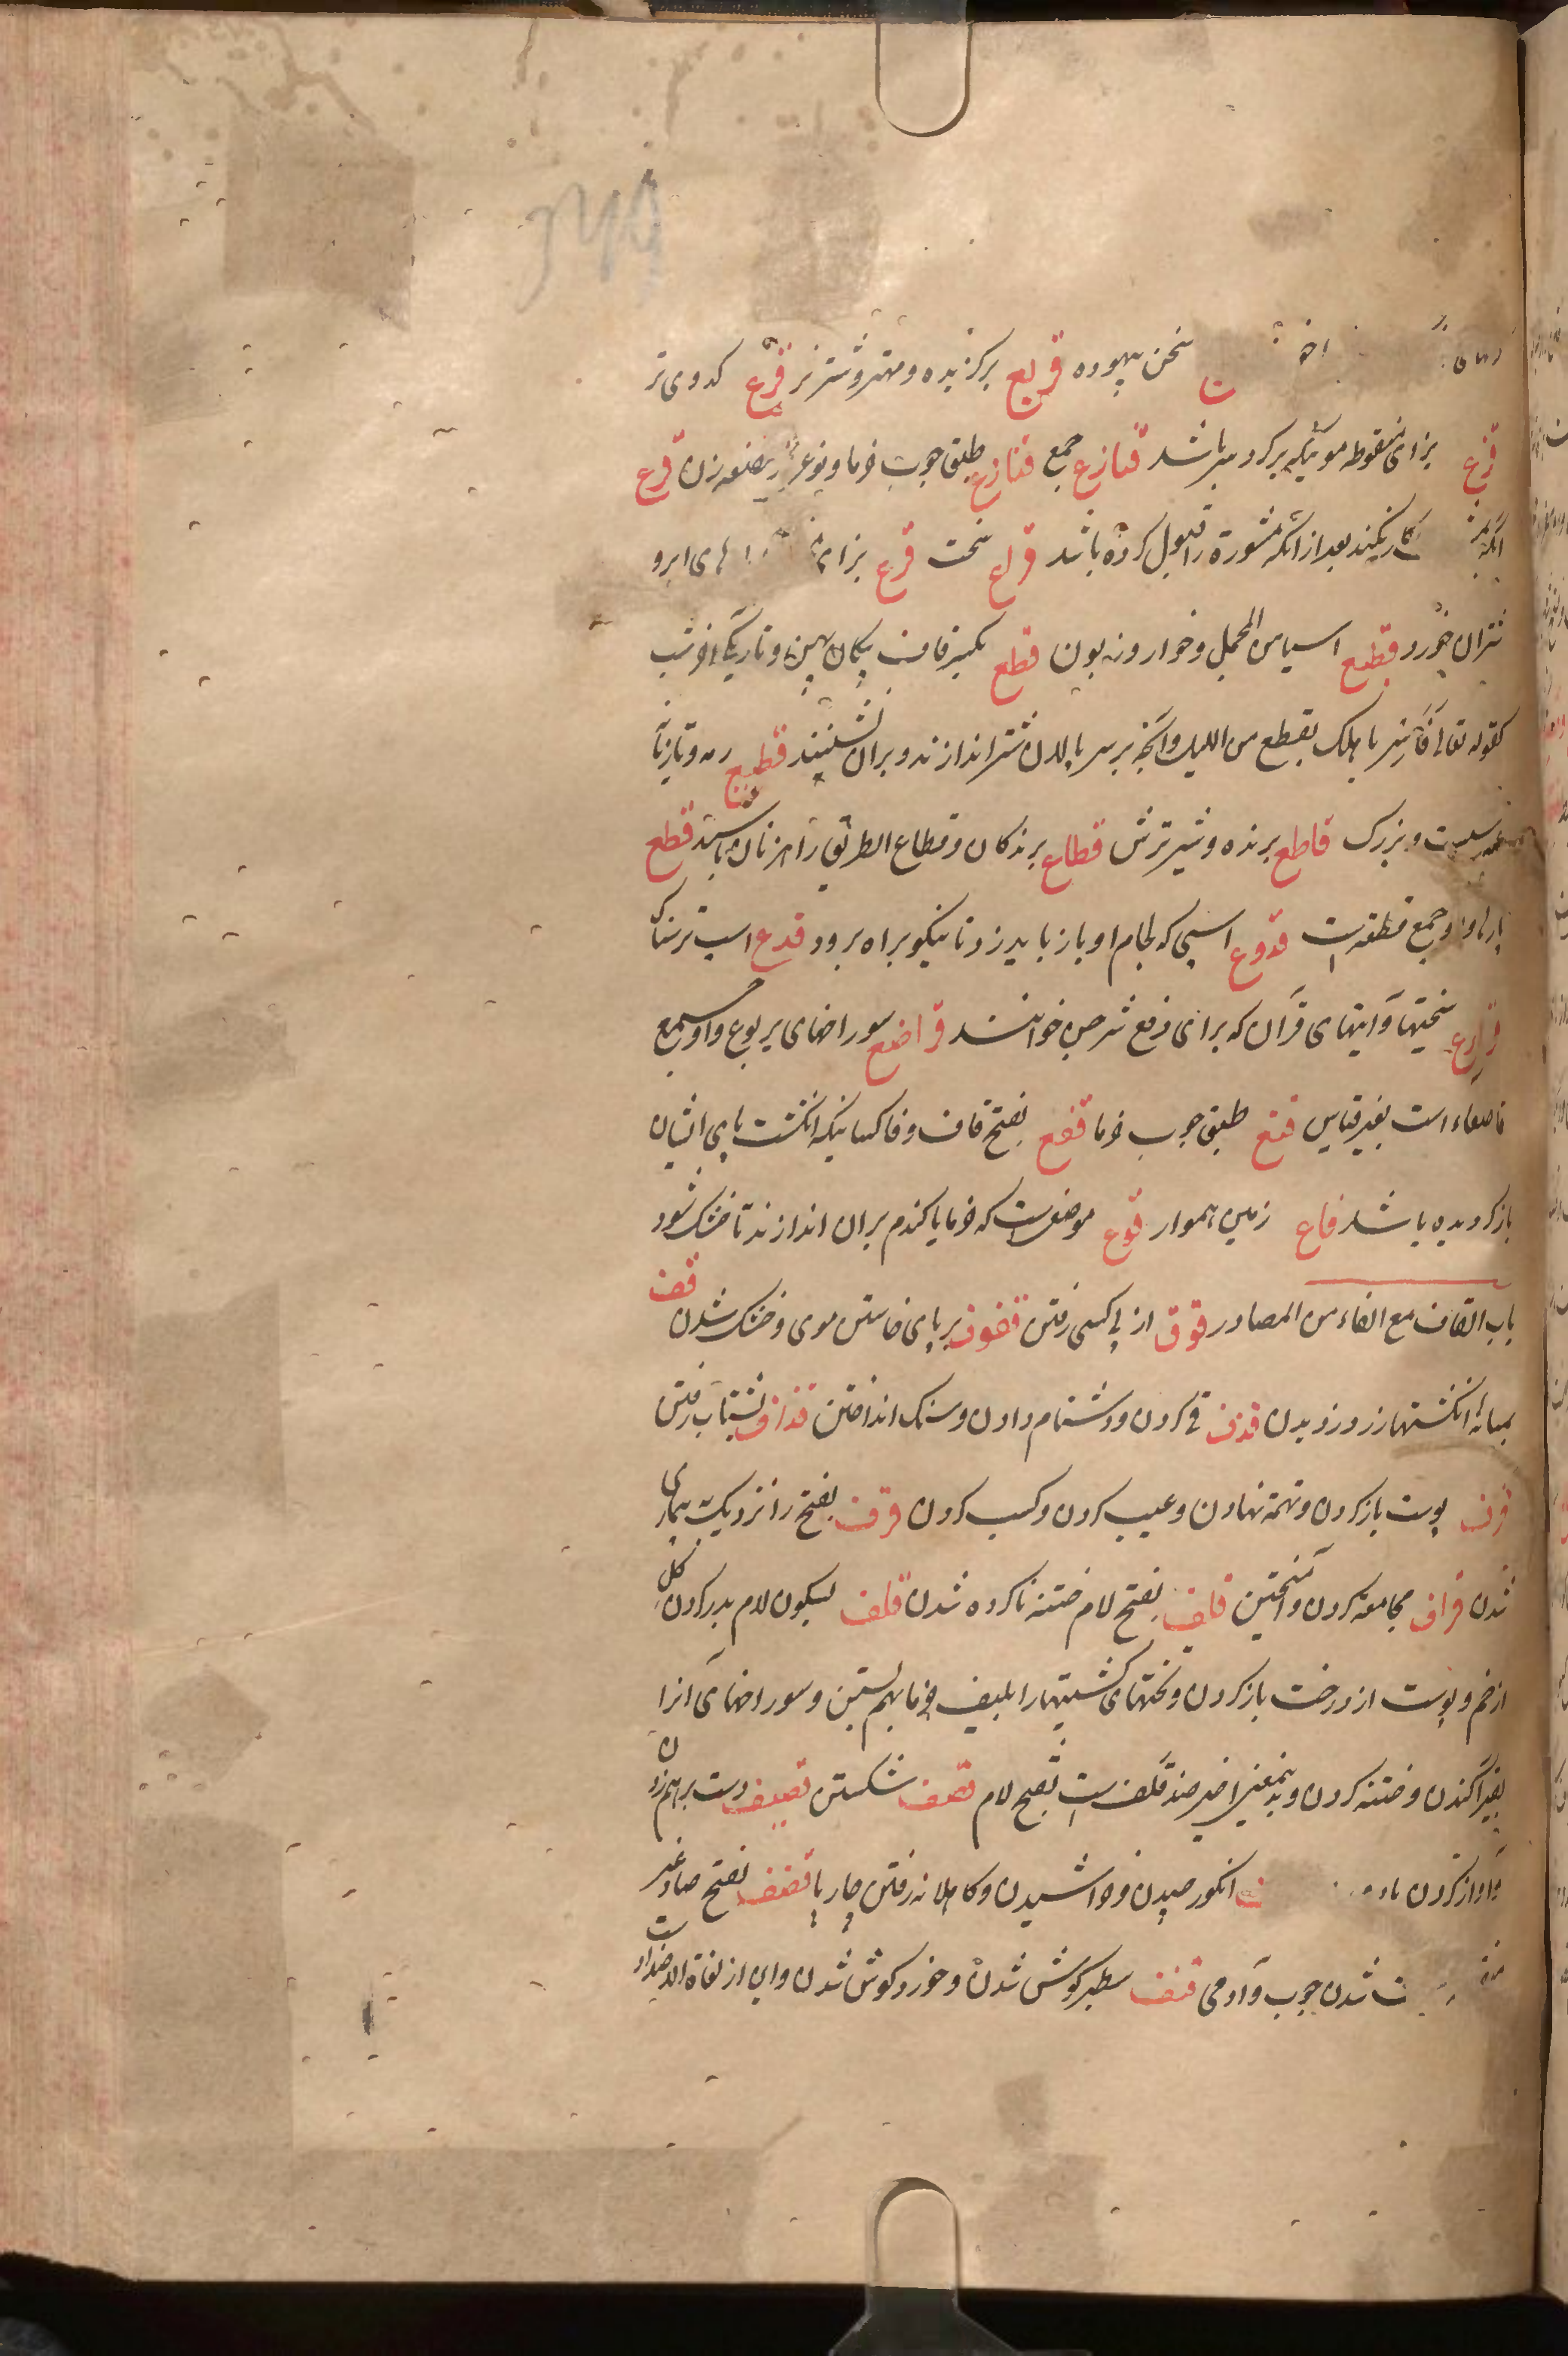 سخن بیهوده قریع برکزیده و مهتر و شتر نر قرع کدوی تر
قزع بزای منقوطه موئیکه برکرد سر باشد قنازع جمع قنازع طبق چوب خرما و نوعی از مقنعه زن قرع
آنکه کار نکند بعد از آنکه مشورة را قبول کرده باشد قراع سخت قزع بزای های ابر و
شتران خورد قطیع اسپاس المحمل و خوار و زبون قطع بکسر قاف پیکان پهن و تاریکی آخر شب
کقوله تعالی فأسر باهلک بقطع من اللیل و آنچه بر سر پالان شتر اندازند و بران نشینند قطیع رمه و تازیانه
و بزرک قاطع برنده و شیر ترش قطاع برندکان و قطاع الطریق راهزنان باشد قطع
پارها و او جمع قطعه است قدوع اسپی که لجام او باز باید زد تا نیکو براه برود قدع اسپ ترسناک
قوارع سختیها و آیتهای قرآن که برای دفع شر جن خوانند قواصع سوراخهای یربوع و او جمع
قاصعاء است بغیر قیاس قنع طبق چوب خرما قفع بفتح قاف و فا کسانیکه انکشت پای ایشان
باز کردیده باشد قاع زمین هموار قوع موضعیست که خرما یا کندم بران اندازند تا خشک شود
باب القاف مع الفاء من المصادر قوف از پی کسی رفتن قفوف بر پای خاستن موی و خشک شدن قف
بمیانه انکشتها زر دزدیدن قذف قی کردن و دشنام دادن و سنک انداختن قذاف بشتاب رفتن
قرف پوست باز کردن و تهمة نهادن و عیب کردن و کسب کردن قرف بفتح را نزدیک بیماری
شدن قراف مجامعة کردن و آمیختن قلف بفتح لام ختنه ناکرده شدن قلف بسکون لام بدر کردن کل
از خم و پوست از درخت باز کردن و تختهای کشتیها را بلیف خرما بهم بستن و سوراخهای آنرا
بقیر آکندن و ختنه کردن و بدین معنی اخیر ضد قلف است بفتح لام قصف شکستن قصیف دست برهم زدن
و آواز کردن انکور چیدن و خراشیدن و کاهلانه رفتن چارپا قضف بفتح ضاد غیر
شدن چوب و آدمی قنف سطبر کوش شدن و خورد کوش شدن و این از لغاة الاضداد است